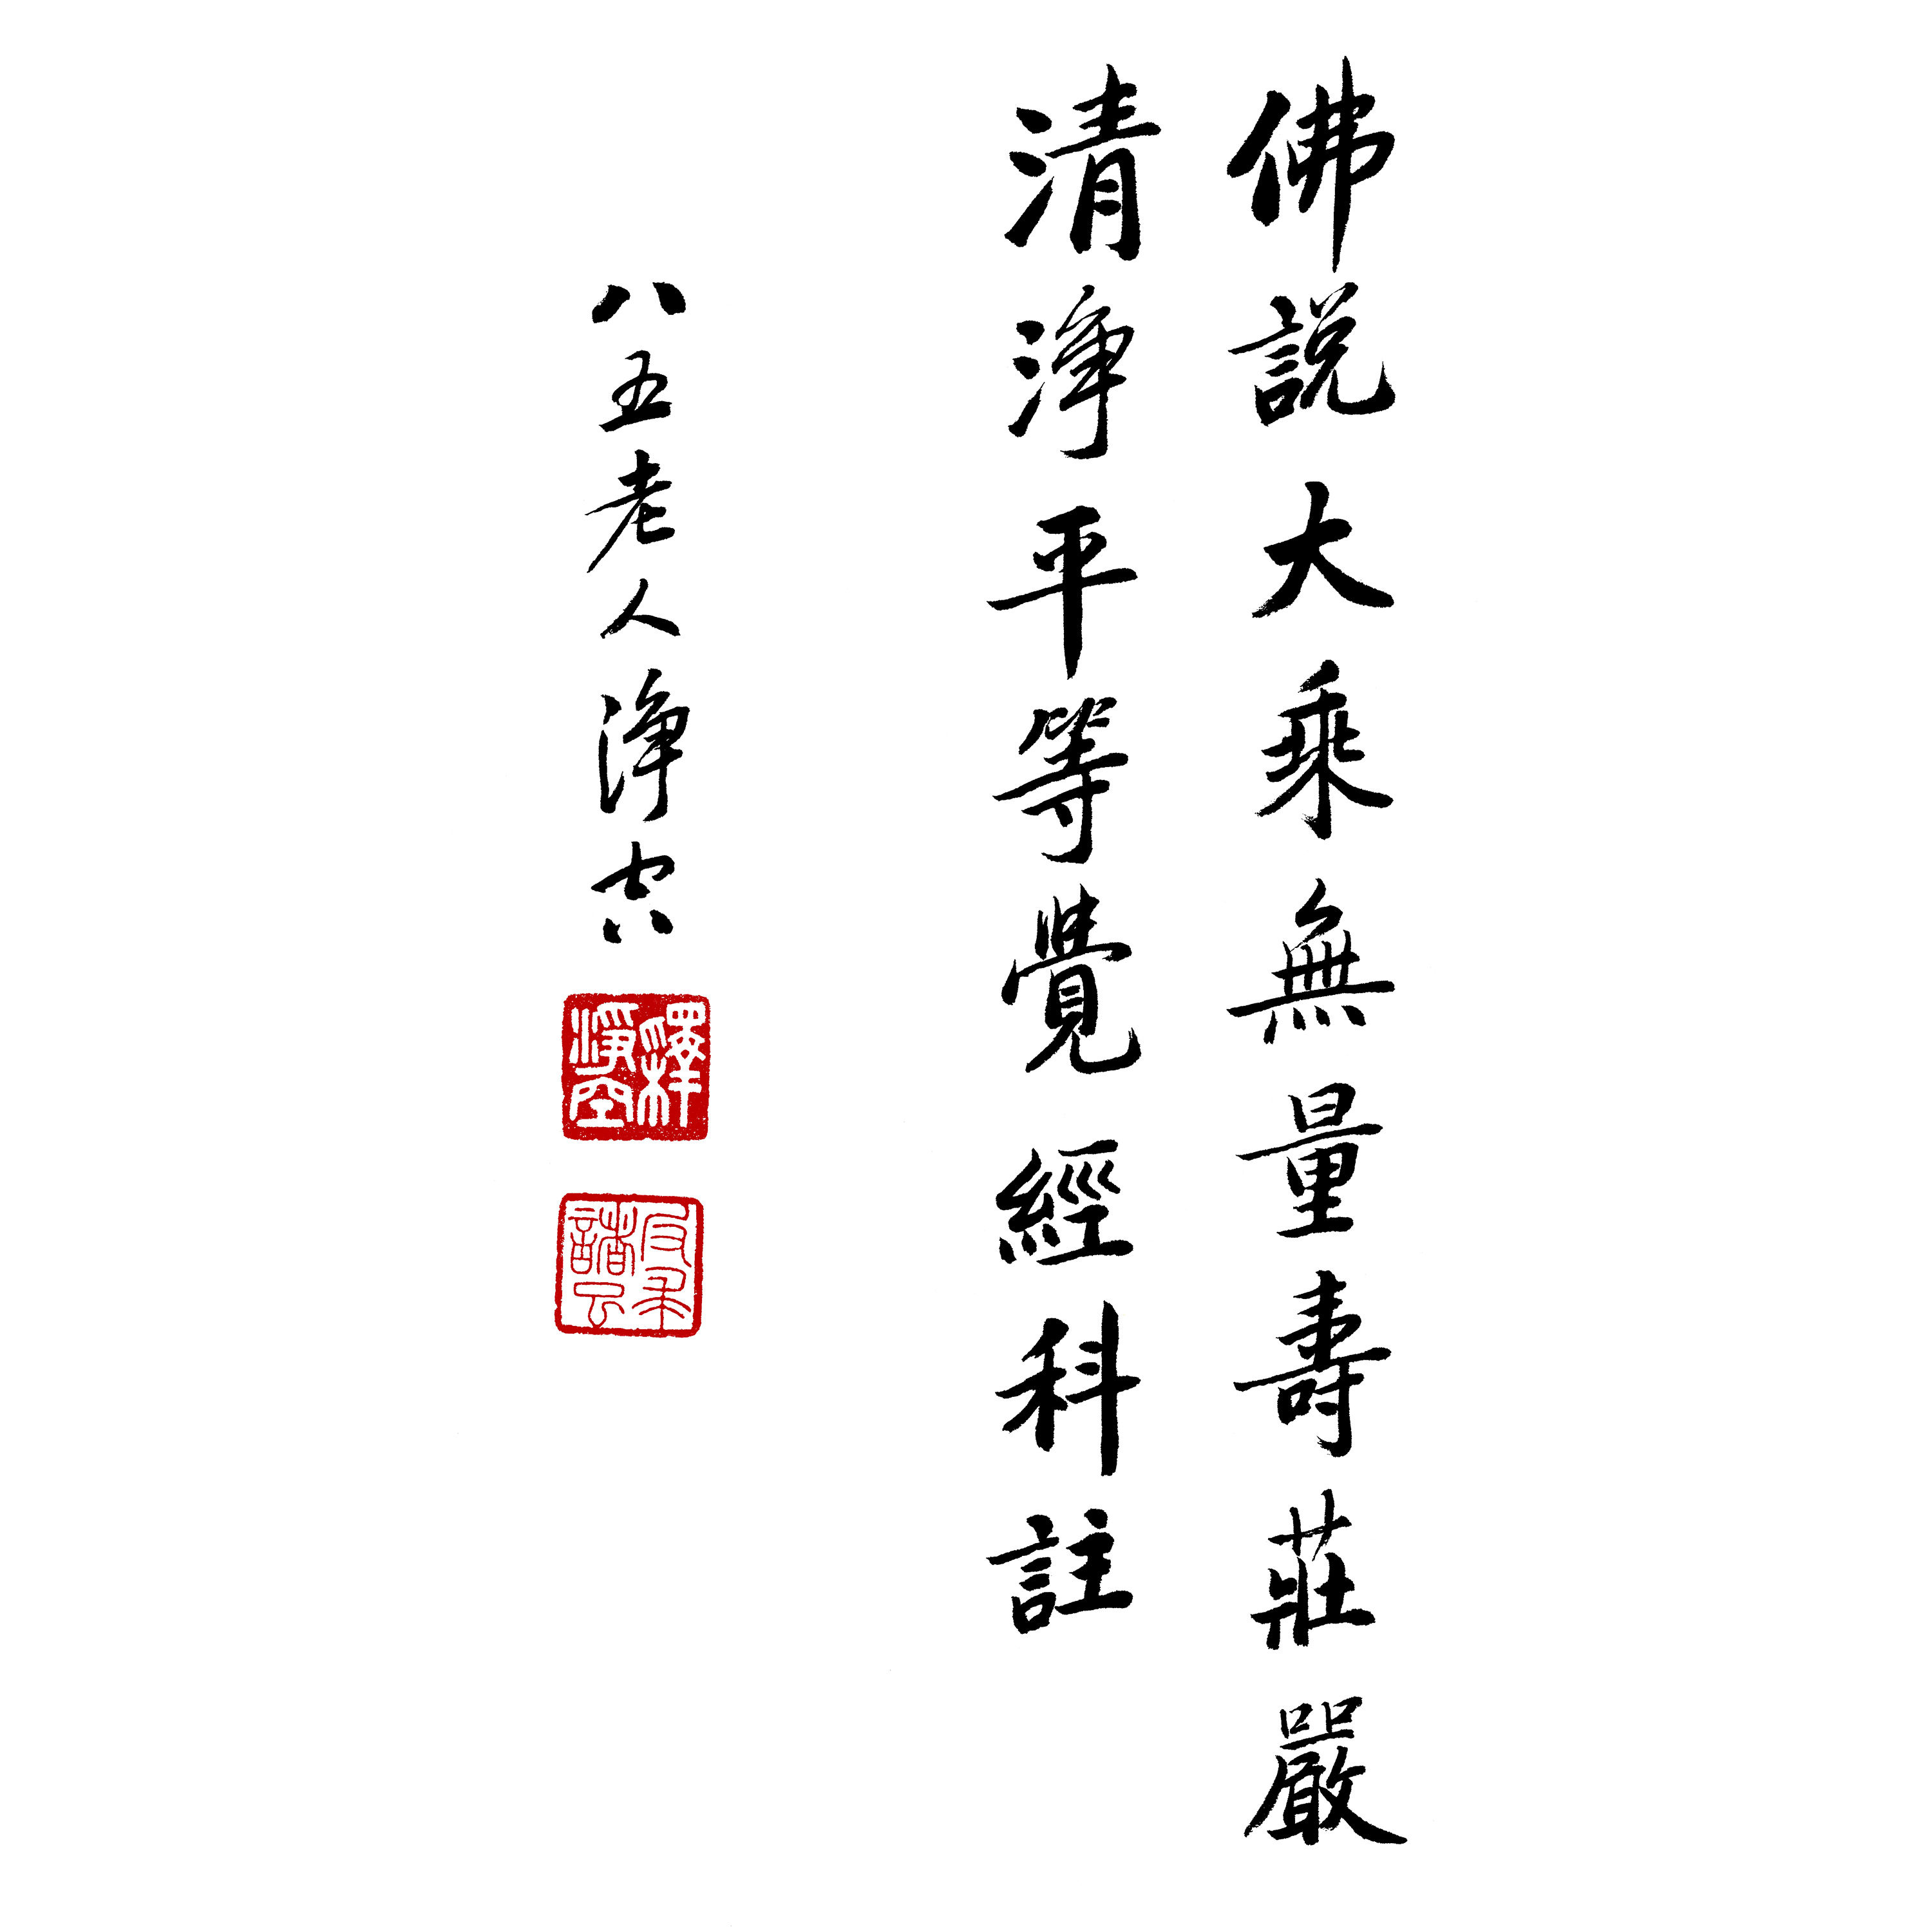 佛說大乘無量壽莊嚴
清淨平等覺經科註
八五老人淨空
釋淨空